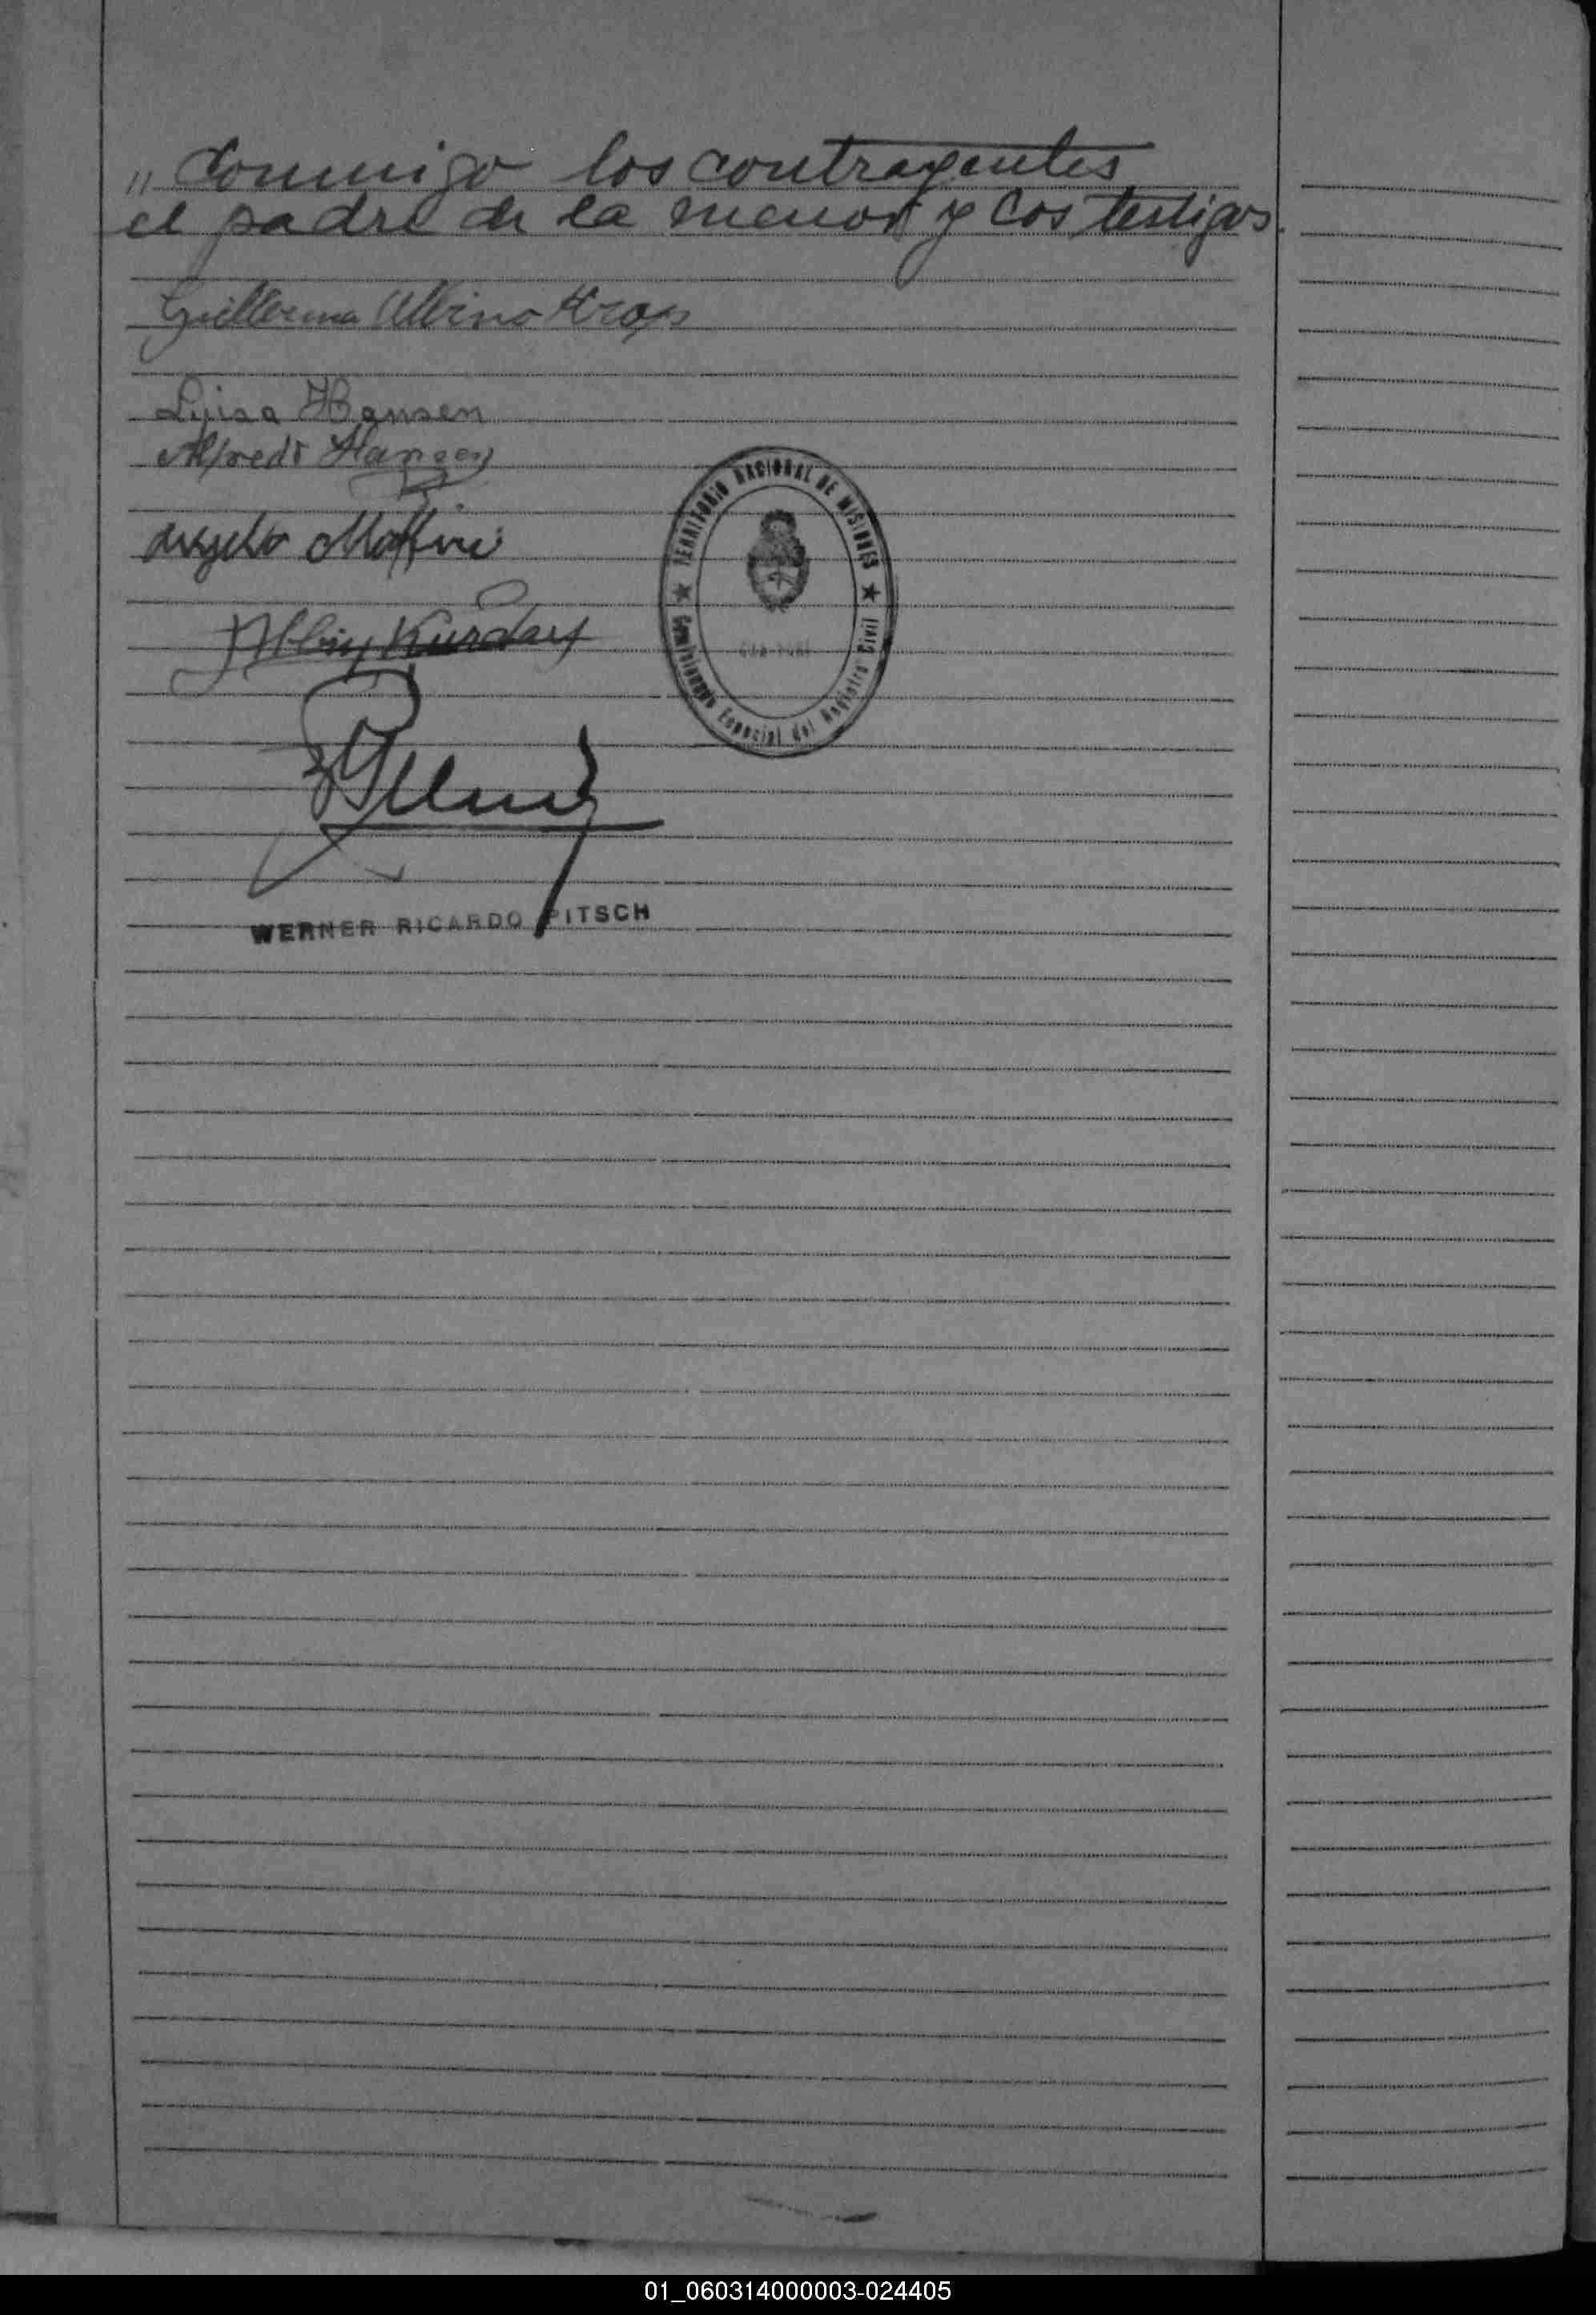 " Conmigo los contrayentes
el padre de la menor y los testigos.
Guillermo Albino Krops
Luisa Hansen
Alfredo Hansen
TERRITORIO NACIONAL DE MISIONES
Comisionado Especial del Registro Civil
WERNER RICARDO PITSCH
01_060314000003-024405